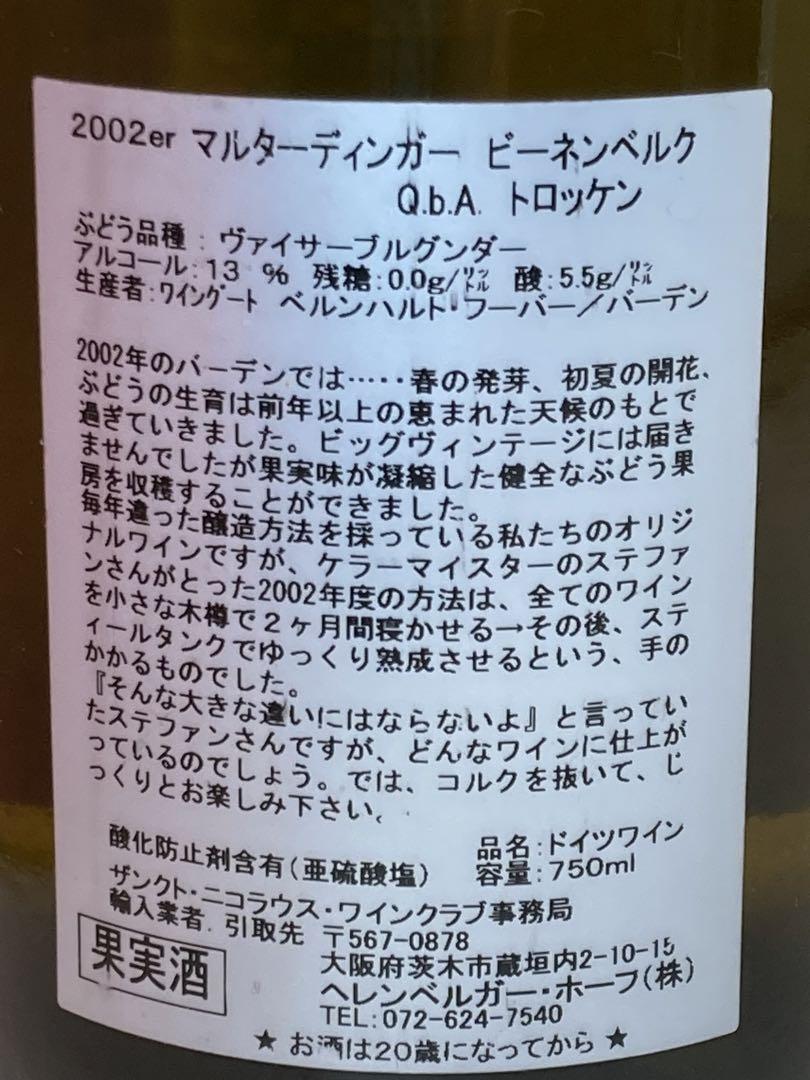 2002er マルターディンガー ビーネンベルク
Q.b.A. トロッケン
ぶどう品種：ヴァイサーブルグンダー
アルコール：13 % 残糖：0.0g/㍑ 酸：5.5g/㍑
生産者：ワイングート ベルンハルト・フーバー／バーデン
2002年のバーデンでは‥‥‥春の発芽、初夏の開花、
ぶどうの生育は前年以上の恵まれた天候のもとで
過ぎていきました。ビッグヴィンテージには届き
ませんでしたが果実味が凝縮した健全なぶどう果
房を収穫することができました。
毎年違った醸造方法を採っている私たちのオリジ
ナルワインですが、ケラーマイスターのステファ
ンさんがとった2002年度の方法は、全てのワイン
を小さな木樽で２ヶ月間寝かせる→その後、ステ
ィールタンクでゆっくり熟成させるという、手の
かかるものでした。
『そんな大きな違いにはならないよ』と言ってい
たステファンさんですが、どんなワインに仕上が
っているのでしょう。では、コルクを抜いて、じ
っくりとお楽しみ下さい。
酸化防止剤含有(亜硫酸塩) 品名：ドイツワイン
容量：750ml
ザンクト・ニコラウス・ワインクラブ事務局
輸入業者．引取先 〒567-0878
大阪府茨木市蔵垣内2-10-15
ヘレンベルガー・ホーフ(株)
TEL：072-624-7540
果実酒
★ お酒は20歳になってから ★